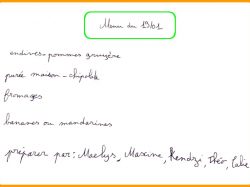 Menu du 19/01
endives-pommes gruyère
purée maison-chipolata
fromages
bananes ou mandarines
préparer par: Maelys, Maxime, Kendji, Théo,